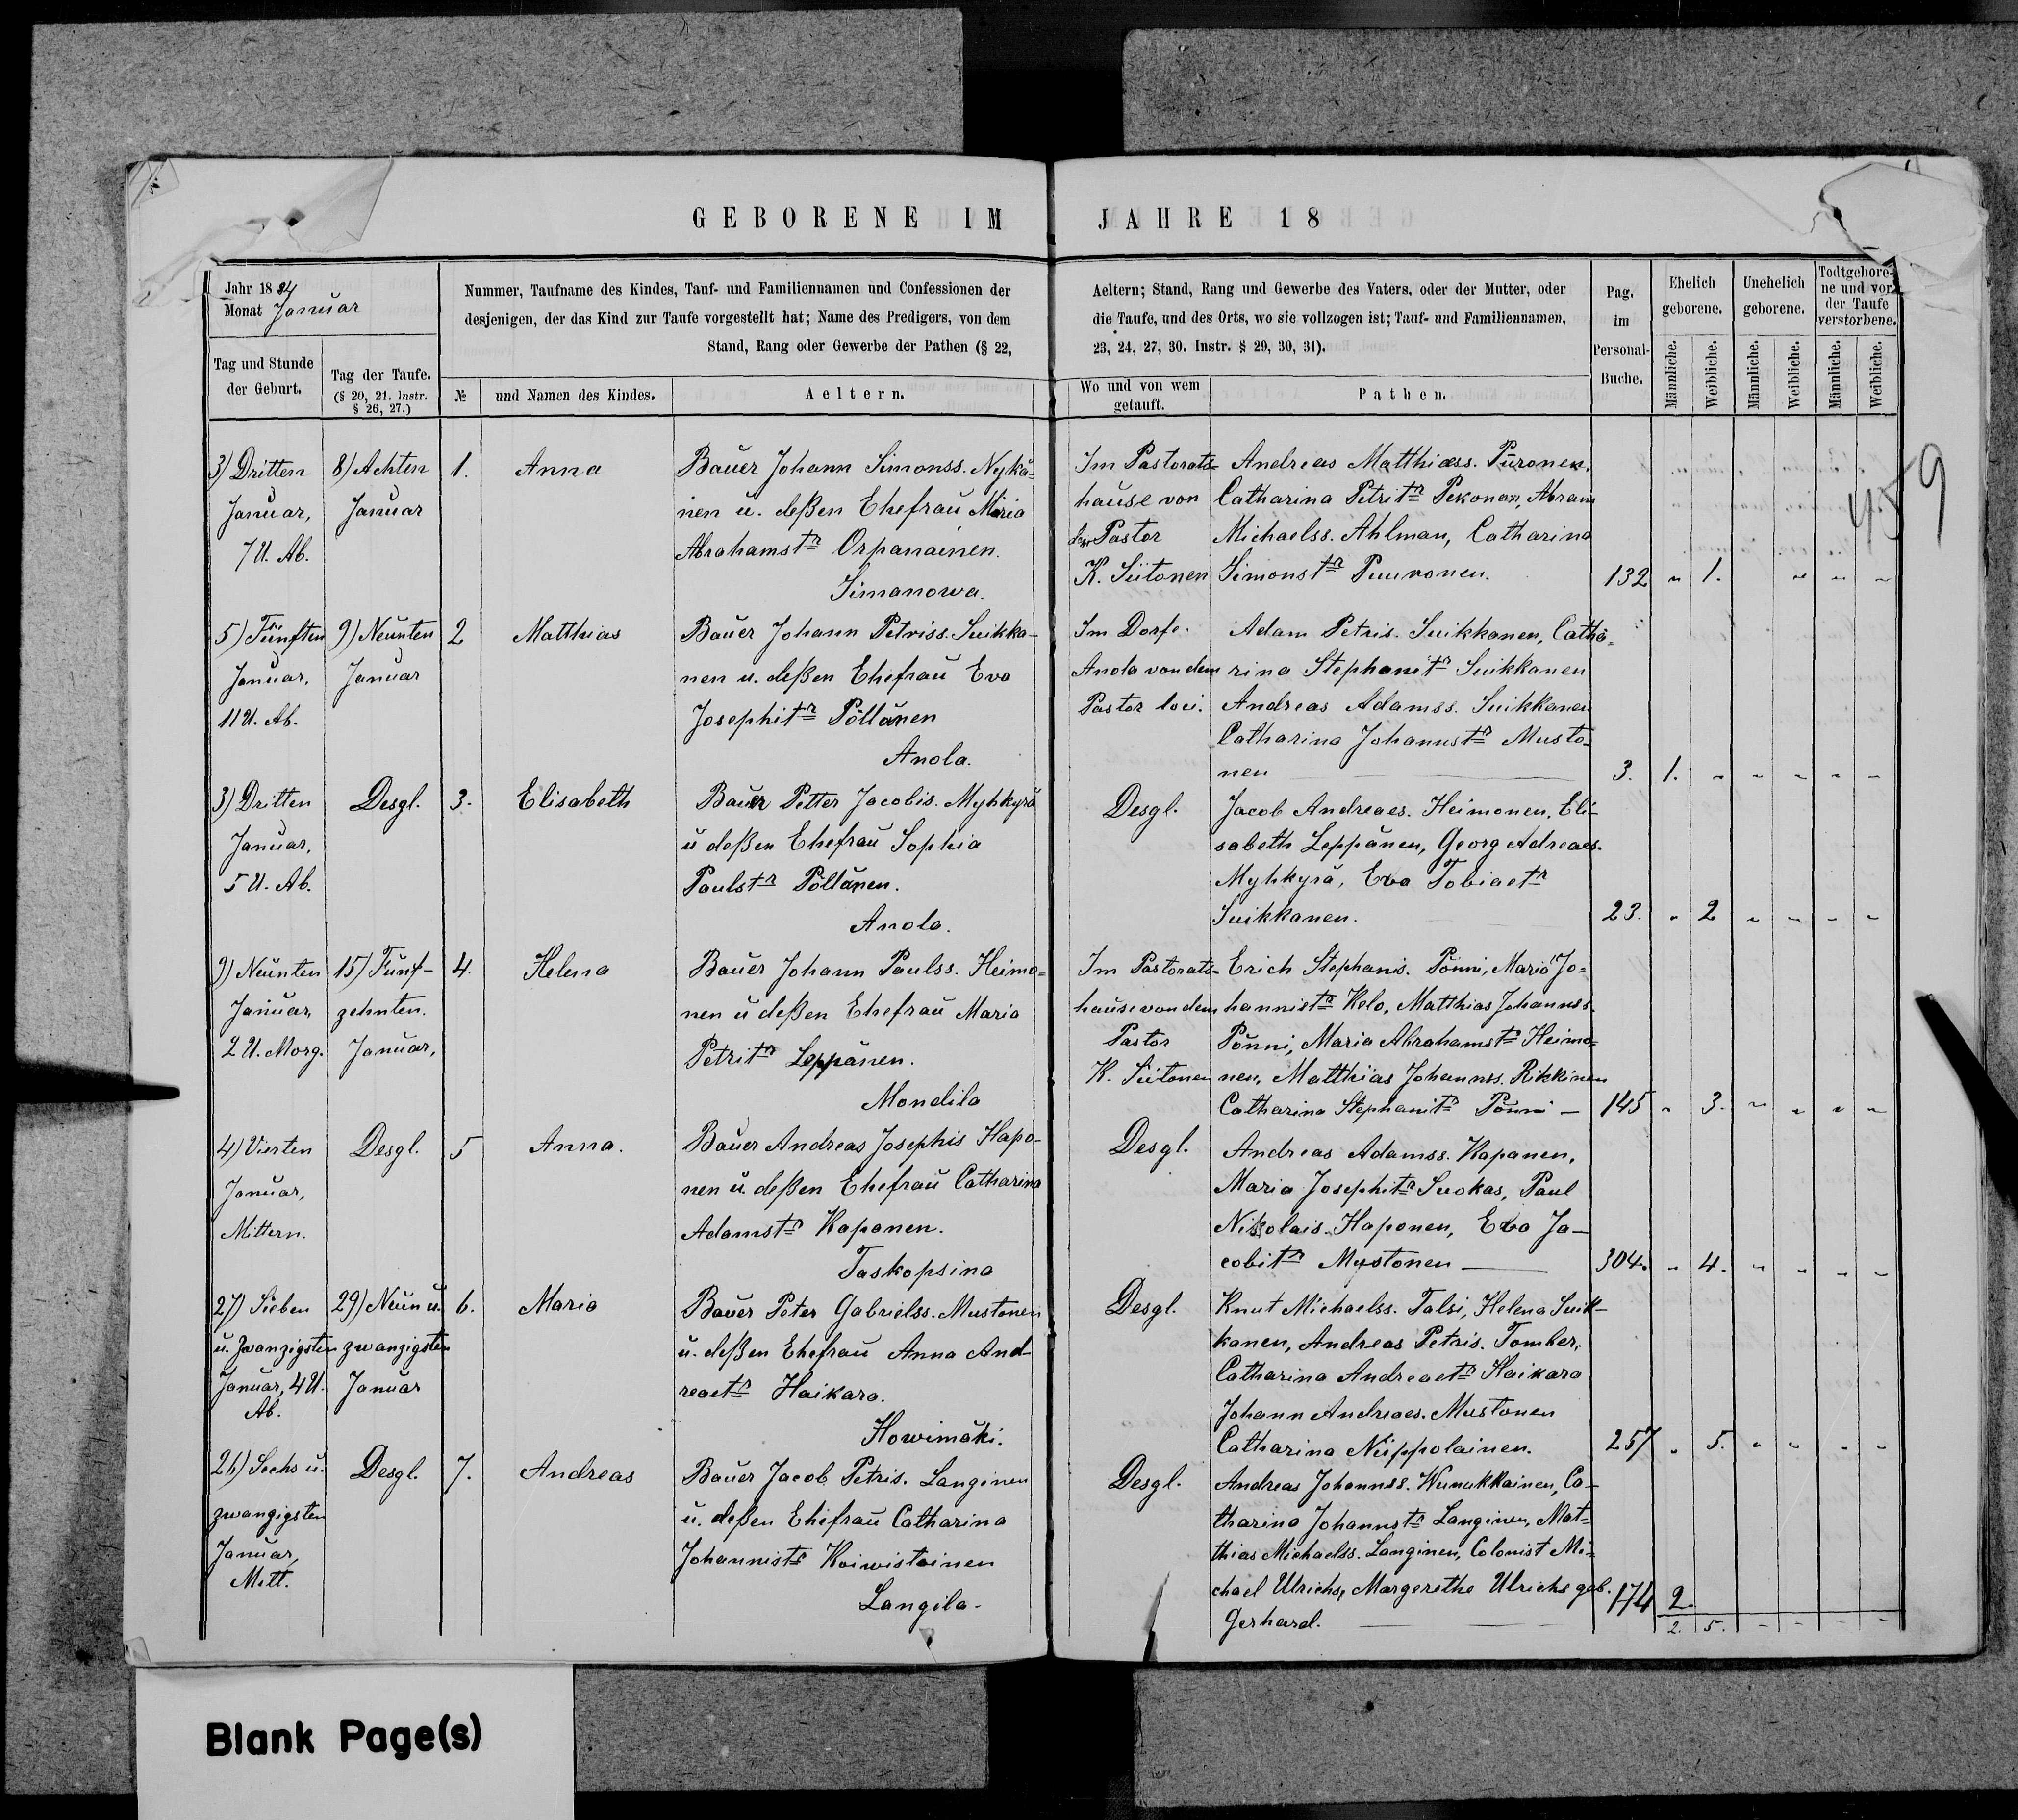 GEBORENE IM JAHRE 18
Jahr 1884
Monat Januar
Nummer, Taufname des Kindes, Tauf- und Familiennamen und Confessionen der
desjenigen, der das Kind zur Taufe vorgestellt hat; Name des Predigers, von dem
Stand, Rang oder Gewerbe der Pathen (§ 22,
Aeltern; Stand, Rang und Gewerbe des Vaters, oder der Mutter, oder
die Taufe, und des Orts, wo sie vollzogen ist; Tauf- und Familiennamen,
23, 24, 27, 30. Instr. § 29, 30, 31).
Pag.
im
Personal-
Buche.
Ehelich
geborene.
Unehelich
geborene.
Todtgebore-
ne und vor
der Taufe
verstorbene.
Tag und Stunde
der Geburt.
Tag der Taufe.
(§ 20, 21. Instr.
§ 26, 27.)
№
und Namen des Kindes.
Aeltern.
Wo und von wem
getauft.
Pathen.
Männliche.
Weibliche.
Männliche.
Weibliche.
Männliche.
Weibliche.
459
3) Dritten
Januar,
7 U. Ab.
8) Achten
Januar
1.
Anna
Bauer Johann Simonss. Nykä-
nen u. deßen Ehefrau Maria
Abrahamstr Orpanainen.
Simanowa.
Im Pastorats-
hause von
dem Pastor
K. Siitonen
Andreas Matthiaess. Puronen,
Catharina Petritr Pekonen, Abram
Michaelss. Ahlman, Catharina
Simonstr Puuronen.
132 " 1. " " "
5) Fünften
Januar,
11 U. Ab.
9) Neunten
Januar
2
Matthias
Bauer Johann Petriss. Suikka-
nen u. deßen Ehefrau Eva
Josephitr Pöllänen
Anola.
Im Dorfe
Anola von dem
Pastor loci.
Adam Petris. Suikkanen, Catha-
rina Stephanitr Suikkanen
Andreas Adamss. Suikkanen
Catharina Johannstr Musto-
nen
3. 1. " " " " "
3) Dritten
Januar,
5 U. Ab.
Desgl.
3.
Elisabeth
Bauer Petter Jacobis. Myhkyrä
u deßen Ehefrau Sophia
Paulstr Pöllänen.
Anola.
Desgl.
Jacob Andreaes. Heimonen, Eli-
sabeth Leppänen, Georg Adreaes.
Myhkyrä, Eva Tobiaetr
Suikkanen.
23. " 2 " " " "
9) Neunten
Januar,
2 U. Morg.
15) Fünf-
zehnten.
Januar,
4.
Helena
Bauer Johann Paulss. Heimo-
nen u deßen Ehefrau Maria
Petritr Leppänen.
Mondila
Im Pastorats-
hause von dem
Pastor
K. Siitonen
Erich Stephanis. Pönni, Maria Jo-
hannistr Kelo, Matthias Johannss.
Pönni, Maria Abrahamstr Heimo-
nen, Matthias Johannss. Rikkinen
Catharina Stephanitr Pönni
145 " 3. " " " "
4) Vierten
Januar,
Mittern.
Desgl.
5
Anna.
Bauer Andreas Josephis Hapo-
nen u. deßen Ehefrau Catharina
Adamstr Kapanen.
Taskopsina
Desgl.
Andreas Adamss. Kapanen,
Maria Josephitr Suokas, Paul
Nikolais. Haponen, Eva Ja-
cobitr Mustonen
304. " 4. " " " "
27) Sieben
u. zwanzigsten
Januar, 4 U.
Ab.
29) Neun u.
zwanzigsten
Januar
6.
Maria
Bauer Peter Gabrielss. Mustonen
u. deßen Ehefrau Anna And-
reaetr Haikara.
Howimäki.
Desgl.
Knut Michaelss. Talsi, Helena Suik-
kanen, Andreas Petris. Tomber,
Catharina Andreaetr Haikara
Johann Andreaes. Mustonen
Catharina Niippolainen.
257 " 5. " " " "
26) Sechs u.
zwanzigsten
Januar,
Mitt.
Desgl.
7.
Andreas
Bauer Jacob Petris. Langinen
u. deßen Ehefrau Catharina
Johannistr Koiwistoinen
Langila.
Desgl.
Andreas Johannss. Wunukkainen, Ca-
tharina Johannstr Langinen, Mat-
thias Michaelss. Langinen, Colonist Mi-
chael Ulrichs, Margerethe Ulrichs geb.
Gerhard.
174 2.
2. 5. " " " "
Blank Page(s)